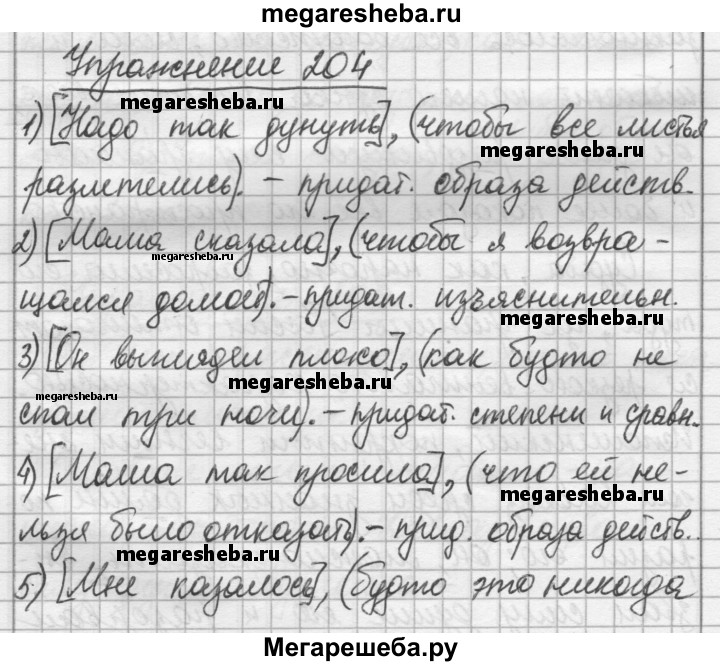 megaresheba.ru
Упражнение 204
megaresheba.ru
1) [Надо так дунуть], (чтобы все листья
megaresheba.ru
разлетелись). – придат. образа действ.
2) [Мама сказала], (чтобы я возвра-
megaresheba.ru
щался домой). – придат. изъяснительн.
megaresheba.ru
3) [Он выглядел плохо], (как будто не
megaresheba.ru
megaresheba.ru
спал три ночи). – придат. степени и сравн.
4) [Маша так просила], (что ей не-
megaresheba.ru
льзя было отказать). – прид. образа действ.
megaresheba.ru
5) [Мне казалось], (будто это никогда
megaresheba.ru
Мегарешеба.ру